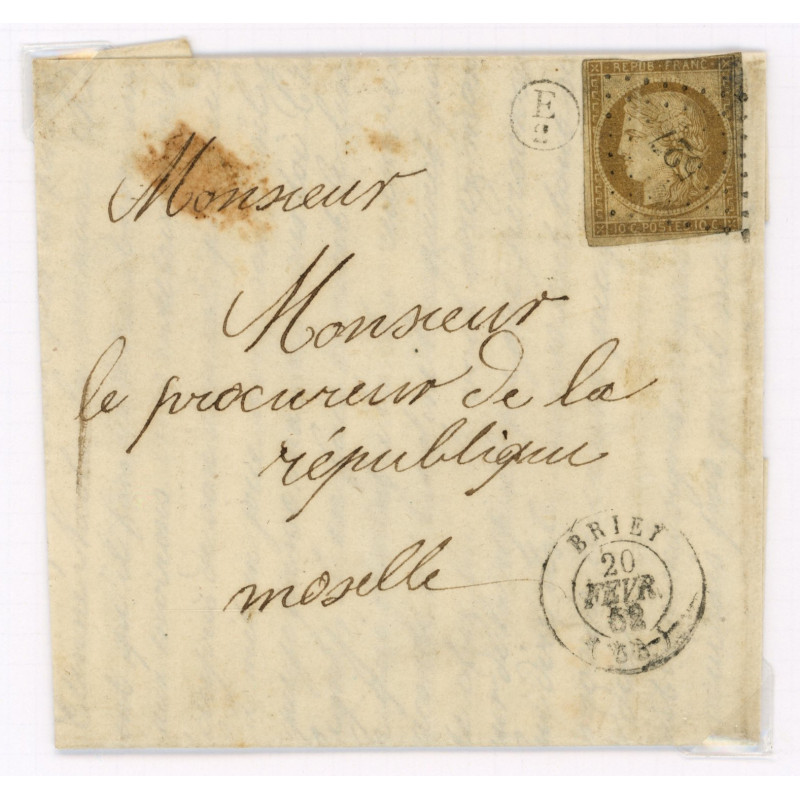 REPUB. FRANC.
E
2
10 C. POSTES 10 C.
Monsieur
Monsieur
le procureur de la
république
moselle
BRIEY
20
FEVR.
52